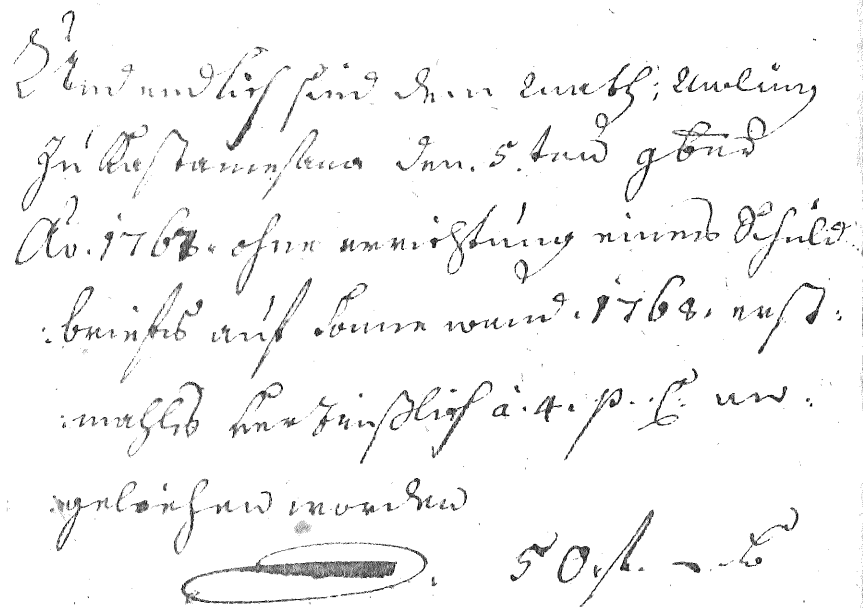 Und endlich sind dem Math: Amling
zu Kastameshann den. 5.ten 9bris
Ao. 1767. ohne errichtung eines Schuld
:briefs auf Sonnewend. 1768. erst:
:mahls verzinßlich à. 4. p. C. an:
:geliehen worden
50 f. –